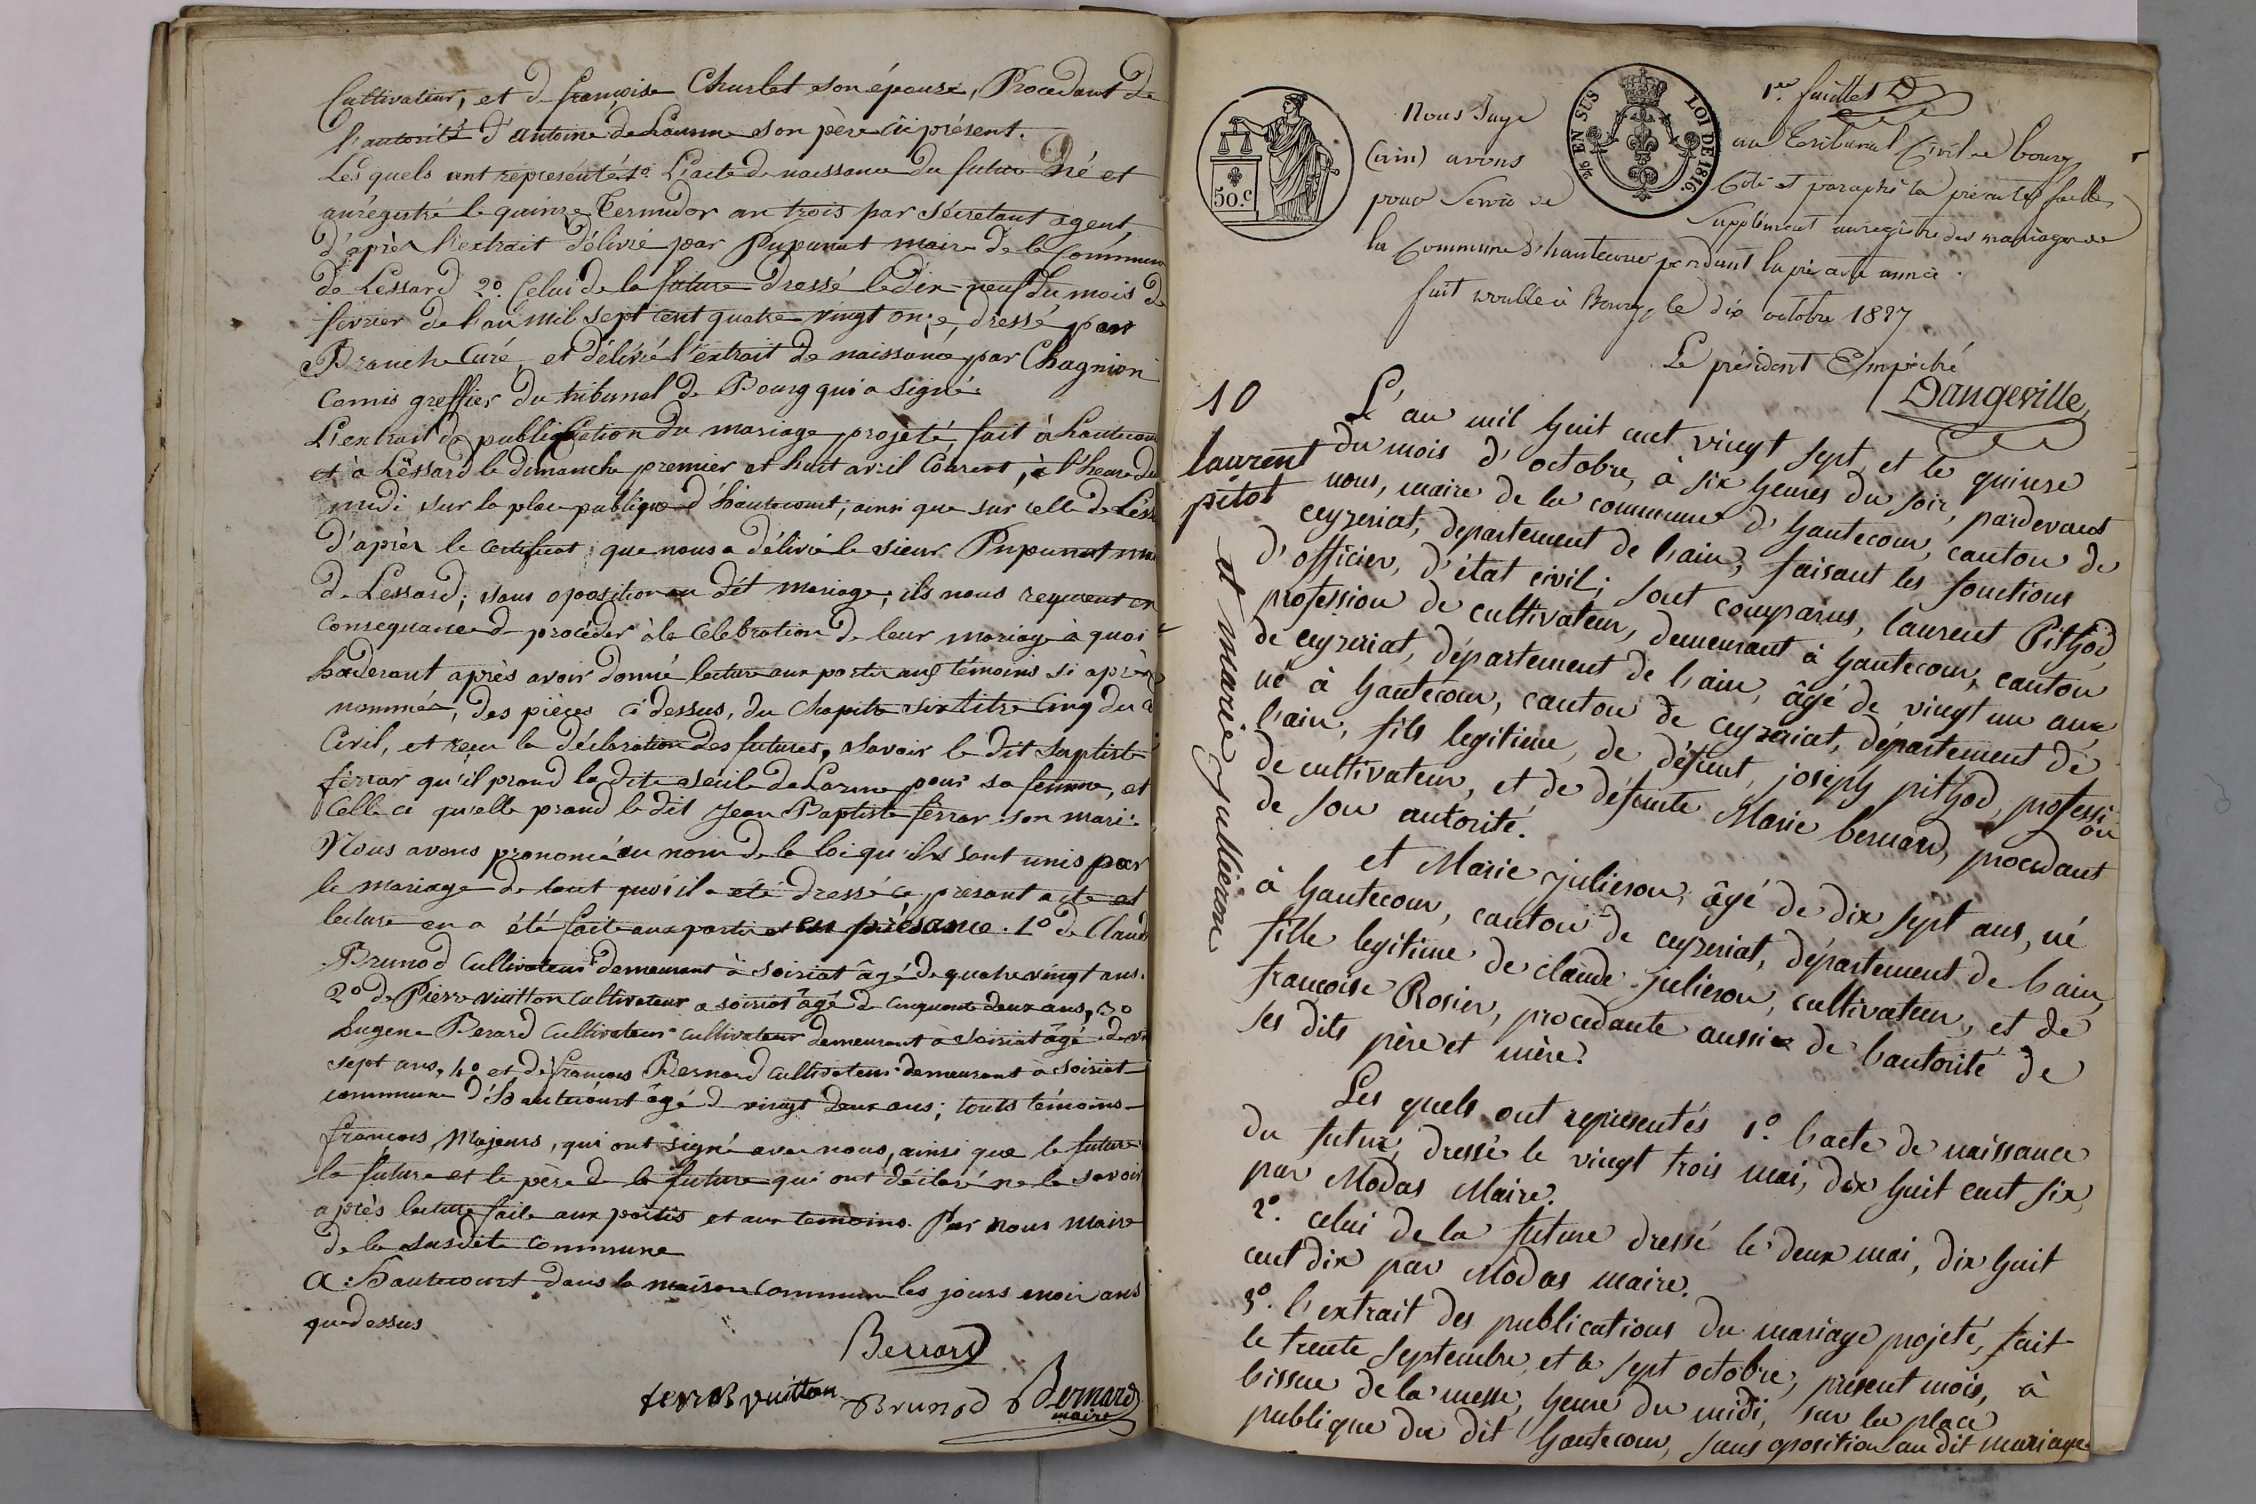 Cultivateur, et de françoise Churlet son épouse, Procedant de
l'autorité d'antoine deLaurme son père ici présent.
Les quels ont représentés 1º L'acte de naissance du futur né et
enrégistré le quinze Termidor an trois par Sécretant agent,
d'après l'extrait délivré par Pupunat maire de la Commune
de Lessard 2º. Celui de la future dressé le dix-neuf du mois de
février de l'an mil sept cent quatre vingt onze, dressé par
Branche Curé, et délivré l'extrait de naissance par Chagnion
Comis greffier du tribunal de Bourg qui a signé.
L'extrait de publication du mariage projeté fait à hautecour
et à Lessard le dimanche premier et huit avril Courent, à l'heure du
midi sur la place publique d'hautecourt, ainsi que sur celle de Less
D'après le certificat, que nous a délivré le sieur Pupunat mai
de Lessard; sans oposition au dit mariage; ils nous requerent en
consequance de procéder à la Célebration de leur mariage à quoi
haderant après avoir donné lecture aux partis aux témoins si après
nommés, des pièces ci dessus, du Chapitre six titre Cinq du C
Civil, et reçu la déclaration des futures, savoir le dit Baptiste
férrar qu'il prand la dite seécile deLarme pour sa femme, et
Celle ci qu'elle prand le dit Jean Baptiste férrar son mari.
Nous avons prononcé au nom de la loi qu'ils sont unis par
le mariage de tout quoi il a été dressé ce présant acte et
lecture en a été faite aux partis et en présance. 1º de Claude
Brunod Cultivateur demeurant à Soiriat âgé de quatre vingt ans.
2º de Pierre vuitton Cultivateur a soiriat âgé de cinquante deux ans, 3º
Eugene Berard Cultivateur Cultivateur demeurant à Soiriat âgé de vi
sept ans, 4º et de françois Bernard Cultivateur demeurant à Soiriat
commune d'hautecourt âgé de vingt deux ans; touts témoins
françois Majeurs, qui ont signé avec nous, ainsi que le future
la future et le père de la future qui ont déclaré ne le savoir
après lecture faite aux partis et aux temoins. Par nous Maire
de la susdite commune
A hautecourt dans la maison commune les jours mois ans
que dessus
Berrard
ferrar vuitton Brunod Bernard
maire
50.C
¾ EN SUS
LOI DE 1816.
1re. feuilles D
Nous Juge au Tribunal Civil de bourg
(ain) avons Coté et paraphé la présente feuille,
pour Servir de Supplément au registre des mariages de
la Commune d'hautecour pendant la présente année.
fait double à Bourg, le dix octobre 1827
Le président Empêché
Dangeville
10
laurent
pitot
et marie jullieron
L'an mil huit cent vingt sept, et le quinze
du mois d'octobre, à six heures du soir, pardevant
nous, maire de la commune d'hautecour, canton de
ceyzeriat, departement de l'ain, faisant les fonctions
d'officier, d'état civil; sont comparus, laurent Pithod,
profession de cultivateur, demeurant à hautecour, canton
de ceyzeriat, département de l'ain, âgé de vingt un ans,
né à hautecour, canton de ceyzeriat, département de
l'ain, fils legitime, de défunt, joseph pithod, professi
on
de cultivateur, et de défunte Marie bernard, procedant
de son autorité.
et Marie julieron, âgé de dix sept ans, né
à hautecour, canton de ceyzeriat, département de l'ain,
fille legitime de claude julieron, cultivateur, et de
françoise Rosier, procedante aussi de l'autorité de
ses dits père et mère.
Les quels ont representés 1º. l'acte de naissance
du futur, dressé le vingt trois mai, dix huit cent six,
par Modas Maire.
2º. celui de la future dressé le deux mai, dix huit
cent dix par Modas maire.
3º. l'extrait des publications du mariage projeté, fait
le trente septembre, et le sept octobre, présent mois, à
l'issue de la messe, heure du midi, sur la place
publique du dit hautecour, sans oposition au dit mariage.